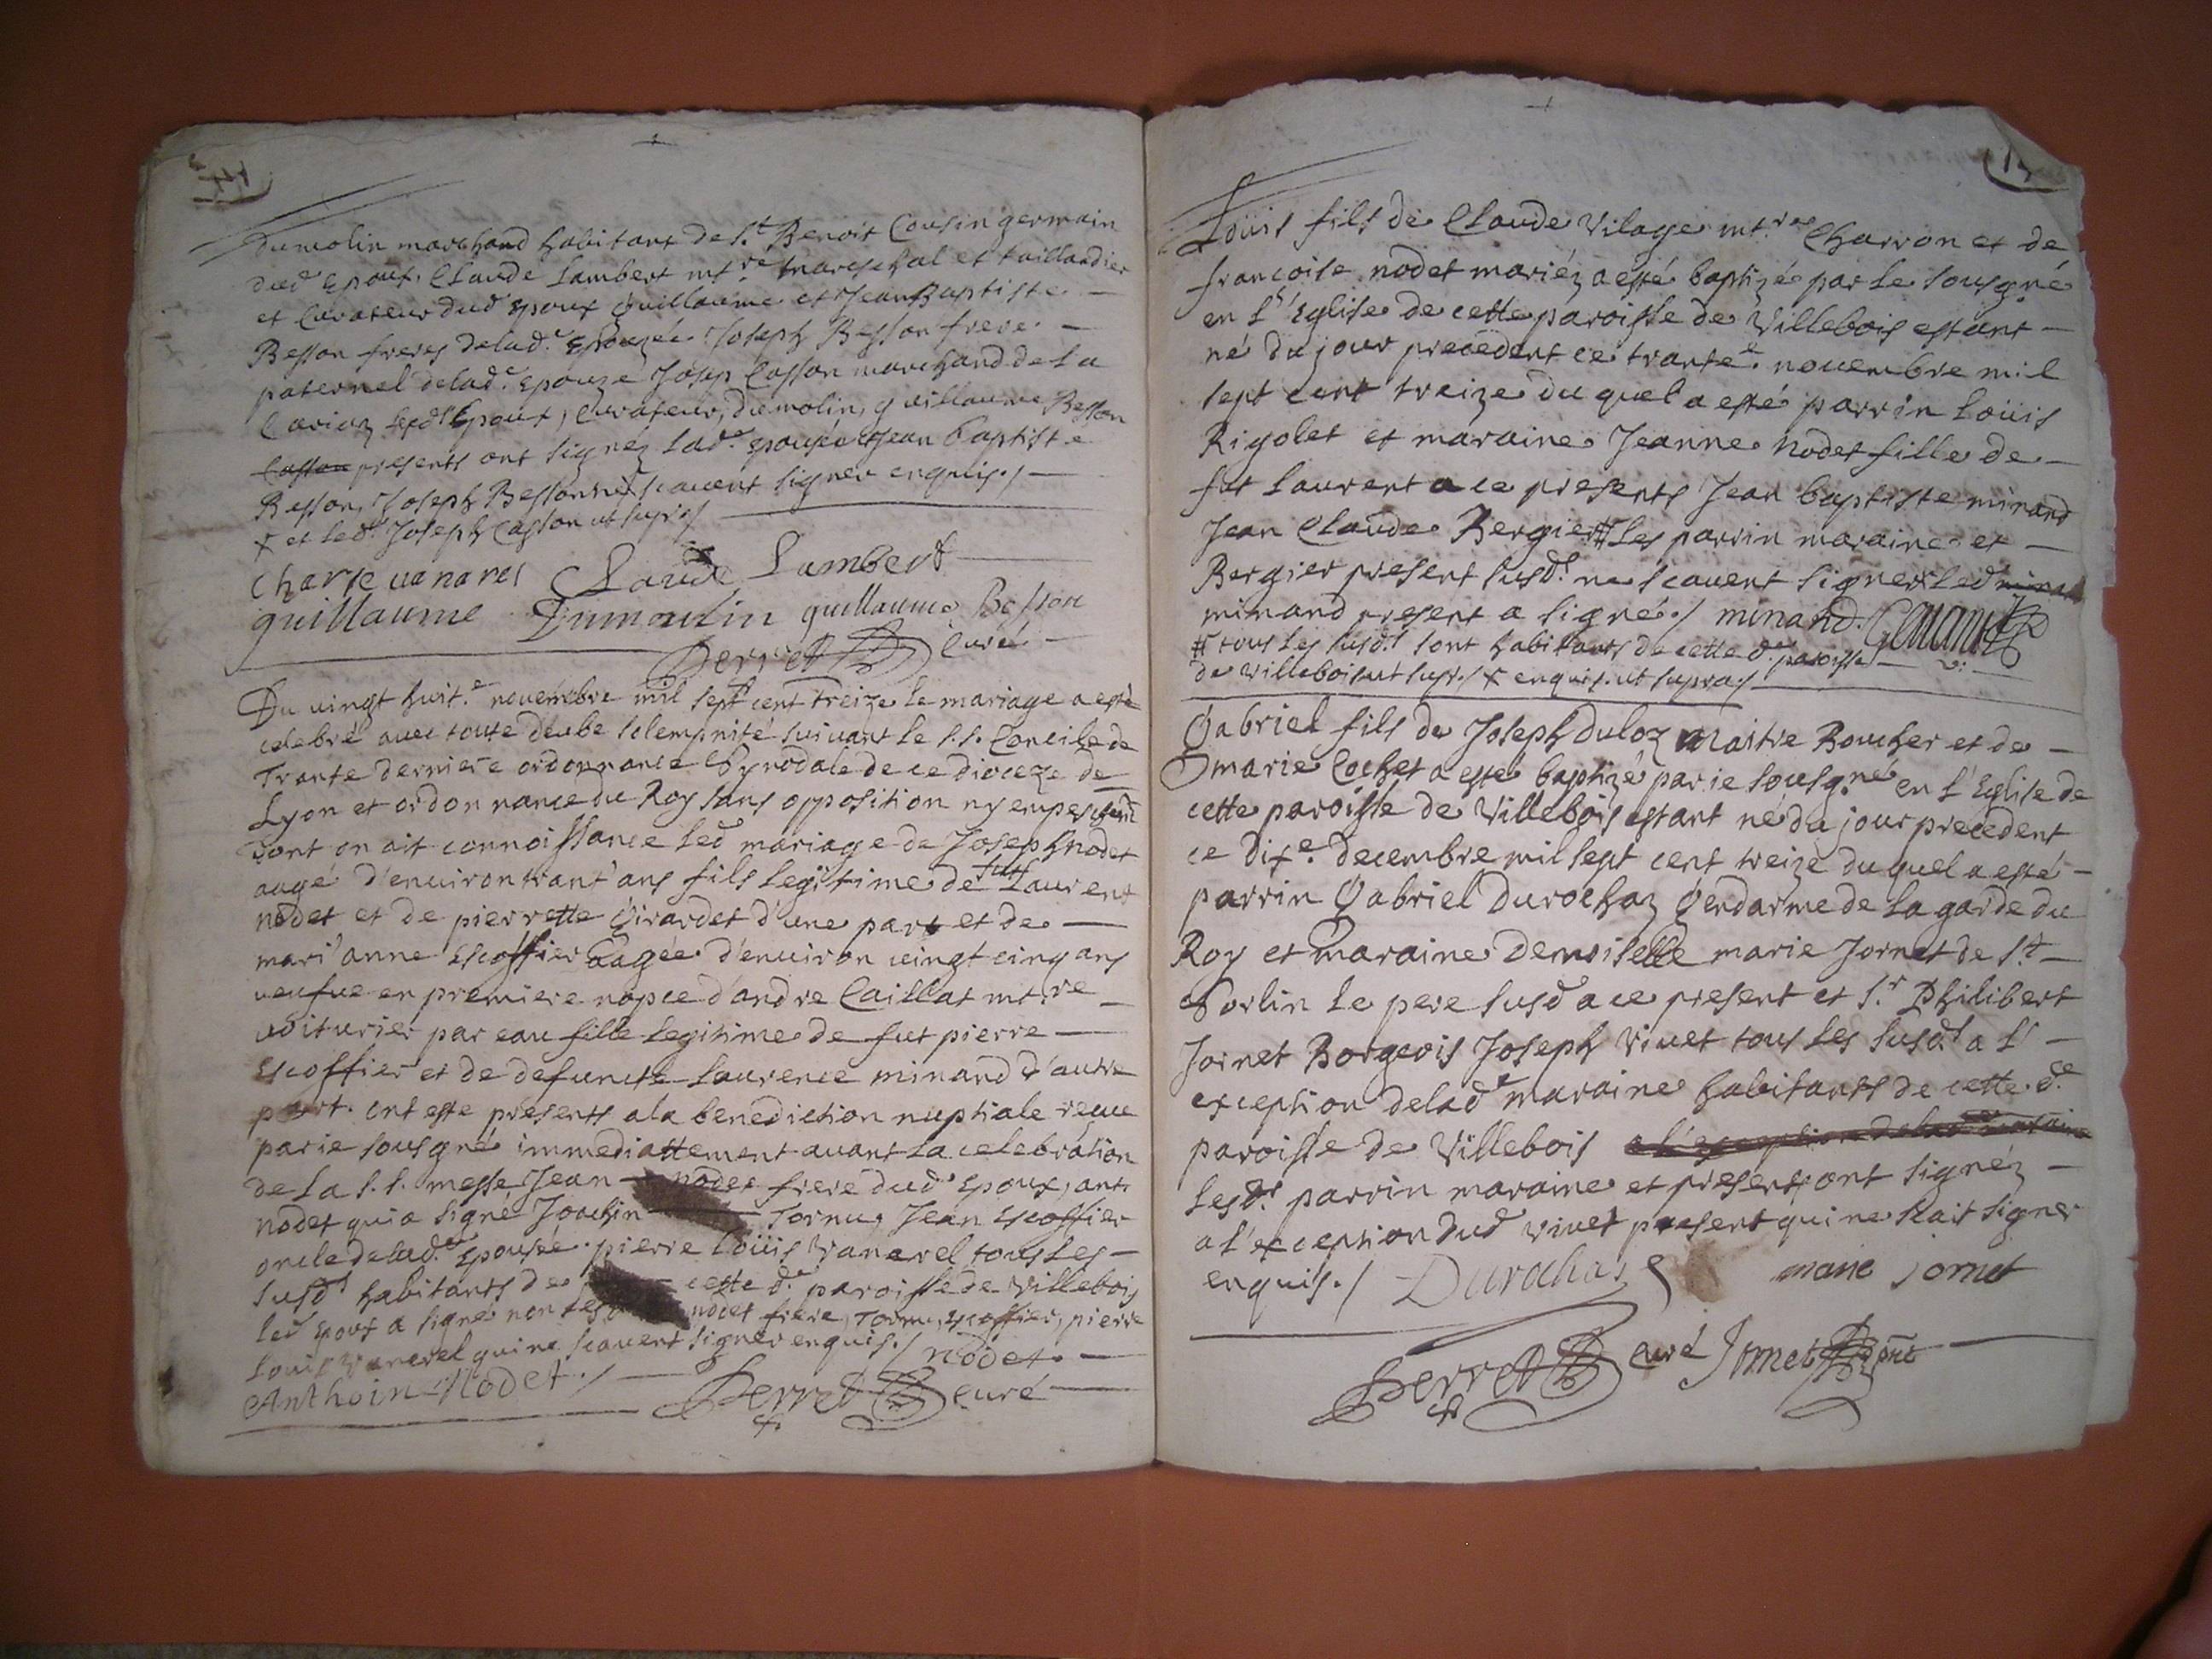 Dumolin marchand habitant de S.t Benoit Cousin germain
dud Epoux, Claude Lambert mt.re mareschal et taillandier
et Curateur dud Epoux Guillaume et Jean Baptiste
Besson freres de lad.e Epouzée Joseph Besson frere
paternel delad.e Epouzé Josep Casson marchand de La
lesd.s Epoux, Curateur, Dumolin, guillaume Besson
Casson presents ont signez lad.e Epousée et Jean baptiste
Besson, Joseph Besson ne scavent signer enquis./
x et led. Joseph Casson ut supr./
Charle vanarel Claude Lambert
guillaume Dumoulin guillaume Besson
Perret Curé
Du vingt huit.e novembre mil sept cent treize le mariage a esté
celebré avec toute deube solempnité suivant le S.S. Concile de
Trante derniere ordonnance Synodale de ce dioceze de
Lyon et ordonnance du Roy sans opposition ny empeschem.t
dont on ait connoissance led mariage de Joseph nodet
aagé d'environ trant' ans fils legitime de fut Laurent
nodet et de pierrette Girardet d'une part et de
mari' anne Escoffier aagée d'environ vingt cinq ans
veufve en premiere nopce d'andre Caillat mt.re
voiturier par eau fille legitime de fut pierre
Escoffier et de defuncte Laurence minand d'autre
part. ont este presents a la benediction nuptiale receue
par ie sousgné immediattement avant la celebration
de La S.S. messe Jean nodet frere dud Epoux, ant.
nodet qui a signé Joachin Tornu, Jean Escoffier
oncle de lad.e Epousée pierre Loüis Vanarel tous les
susd.s habitants de cette d.e paroisse de Villebois
led Epoux a signé non les nodet frere, Tornu, Escoffier, pierre
Louis Vanerel qui ne scavent signer enquis./ Nodet
Anthoin Nodet ./ Perret curé
Loüis fils de Claude Vilage mt.re Charron et de
francoise nodet mariéz a esté baptizé par le sousgné
en L'Eglise de cette paroisse de Villebois estant
né du jour precedent ce trante.e novembre mil
sept cent treize du quel a esté parrin Loüis
Rigolet et maraine Jeanne nodet fille de
fut Laurent a ce presents Jean baptiste minand
Jean Claude Bergier # Les parrin maraine et
Bergier present susd.s ne scavent signer x Led
minand present a signé ./ minand.
# tous les susd.s sont habitants de cette d.e paroisse
de Villebois ut supr./ x enquis. ut supra./
Gabriel fils de Joseph Duloz Maitre Boucher et de
marie Cochet a esté baptizé par ie sousgné en L'Eglise de
cette paroisse de Villebois estant né du jour precedent
ce dix.e decembre mil sept cent treize du quel a esté
parrin Gabriel Durochaz Gendarme de La garde du
Roy et maraine Demoiselle marie Jornet de S.t
Sorlin Le pere susd a ce present et S.r Philibert
Jornet Borgeois Joseph Vivet tous les susd.s a l'
exception delad.e maraine habitants de cette d.e
paroisse de Villebois a l'exception delad.e maraine
Lesd.s parrin maraine et presents ont signéz
a l'exception dud Vivet present qui ne scait signer
enquis./ Durochaz marie jornet
Perret curé Jornet pnt